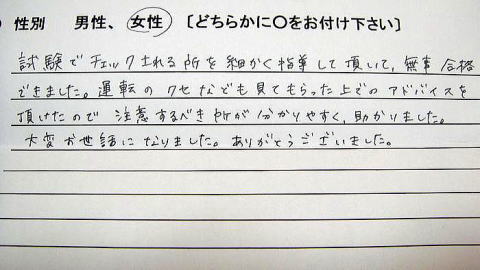 性別 男性、女性 [どちらかに〇をお付け下さい]
試験でチェックされる所を細かく指導して頂いて、無事合格
できました。運転のクセなども見てもらった上でのアドバイスを
頂けたので注意するべき所が分かりやすく、助かりました。
大変お世話になりました。ありがとうございました。